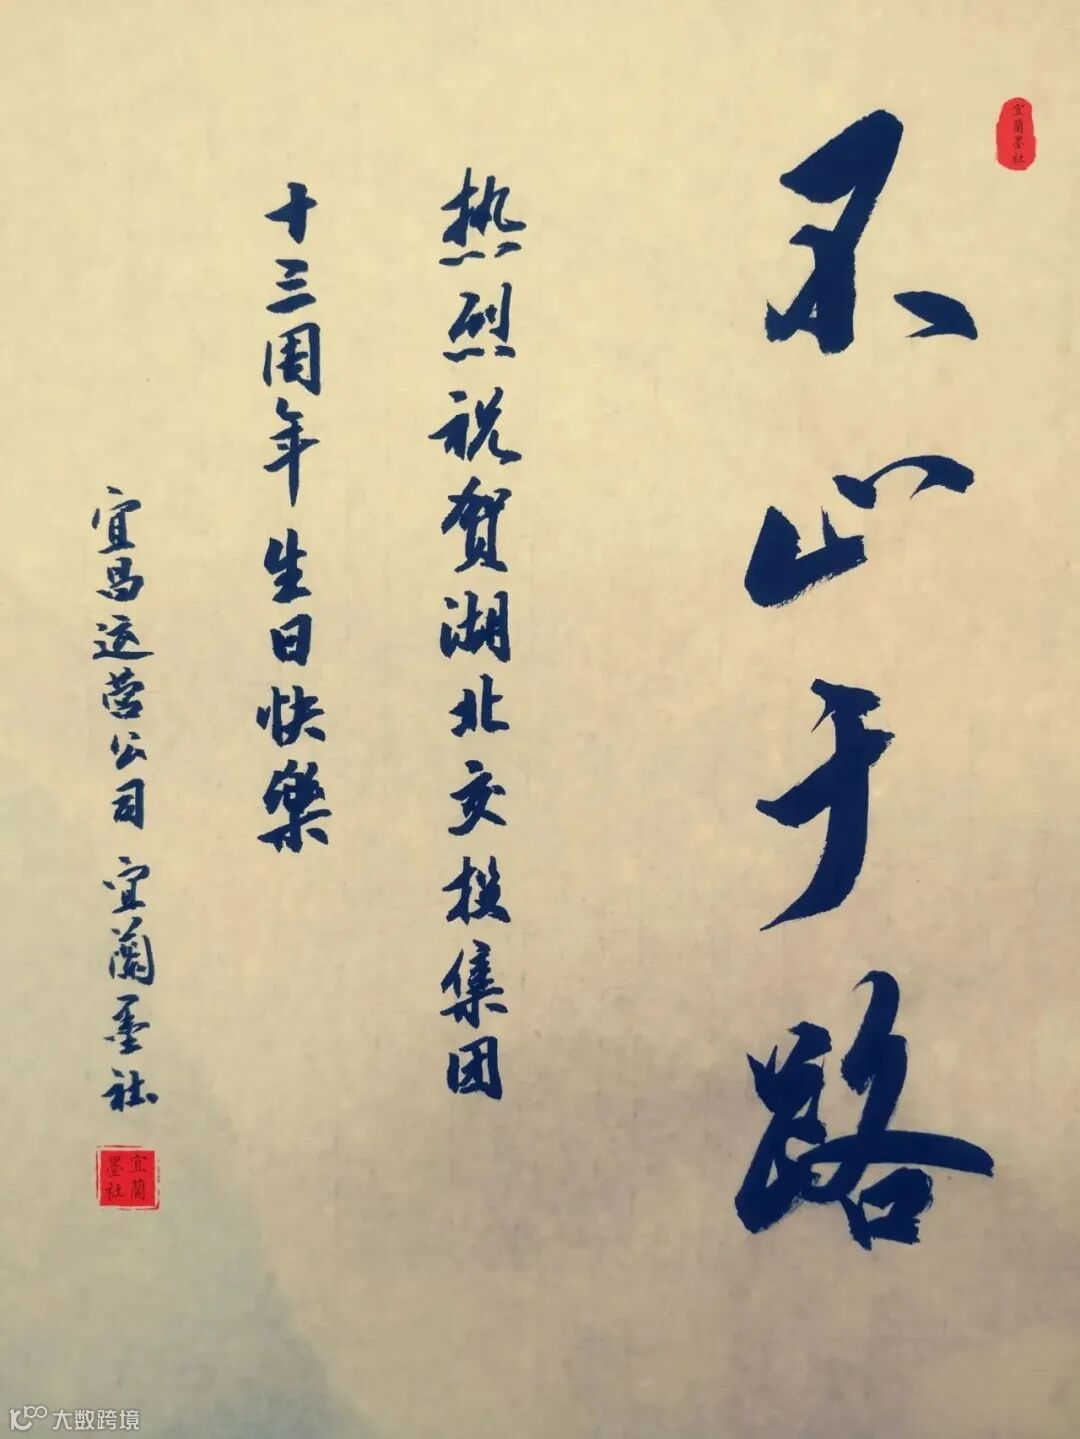 宜蘭墨社
不止于路
热烈祝贺湖北交投集团
十三周年生日快樂
宜昌运营公司 宜蘭墨社
宜蘭墨社
大数跨境